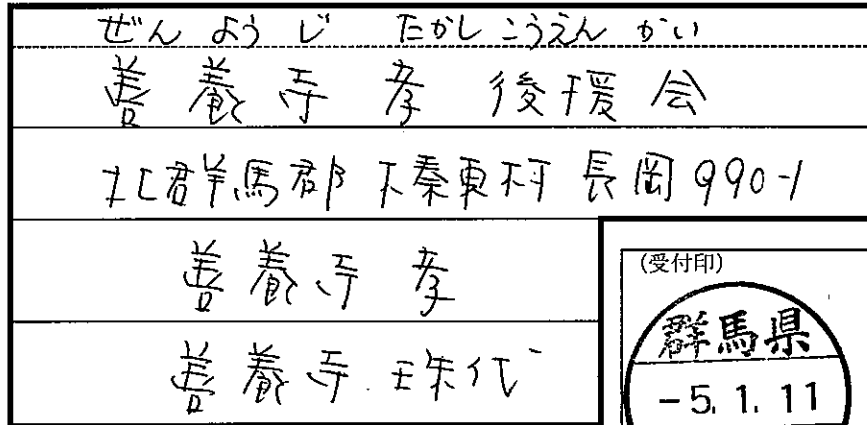 ぜんようじ たかしこうえんかい
善養寺 孝 後援会
北群馬郡 榛東村 長岡990-1
善養寺 孝
善養寺 珠代
(受付印)
群馬県
-5.1.11